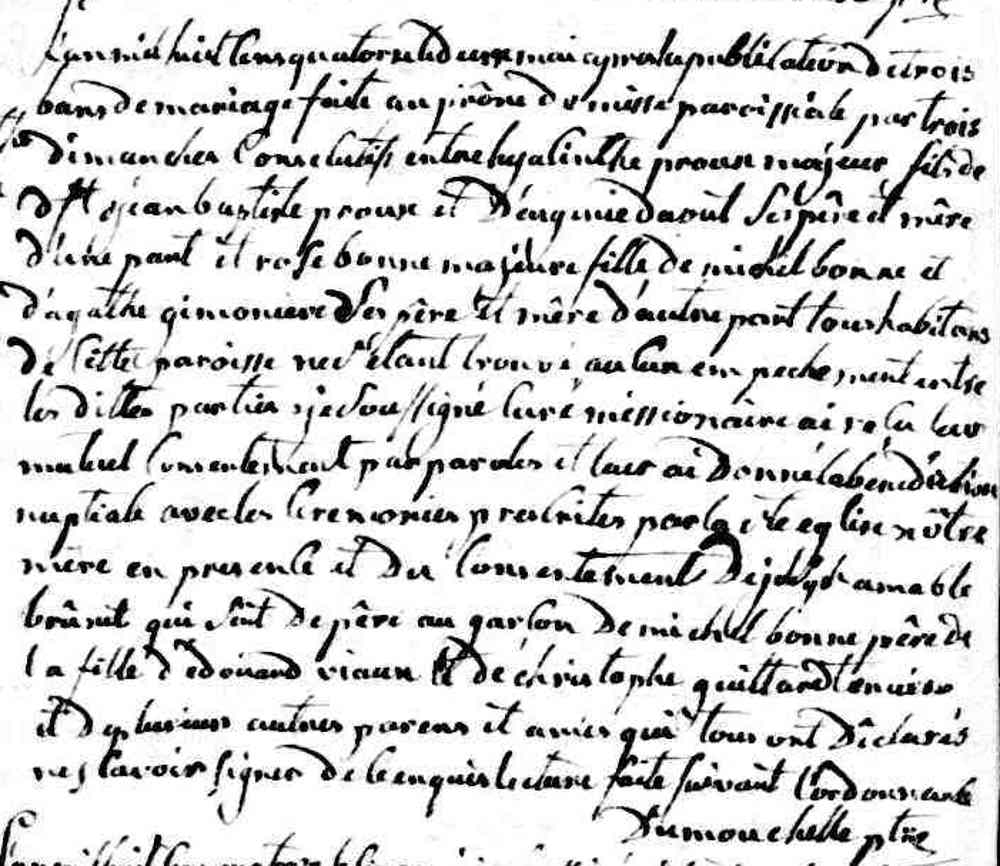 L'an mil huit cens quatorze le deux mai apres la publication de trois
bans de mariage faite au prône de messe paroissiale par trois
dimanches Consecutifs entre hyacinthe proux majeur fils de
jean baptiste proux et D'eugenie daout Ses père et mère
d'une part et rose bonne majeure fille de michel bonne et
d'agathe gimoniere Ses père et mère d'autre part tous habitans
de Cette paroisse ne s'etant trouvé aucun empechement entre
les dittes parties je Soussigné Curé missionaire ai reçu leur
mutuel Consentement par paroles et leur ai Donné la benediction
nuptiale avec les Ceremonies prescrites par la ste eglise nôtre
mère en presence et Du Consentement De joseph amable
brunet qui Sert De père au garçon De michel bonne père de
la fille d'edouard viaux et de christophe quittard temoins
et De plusieurs autres parens et amis qui tous ont Déclarés
ne Scavoir signer de ce enquis lecture faite suivant l'ordonnance
Dumouchelle ptre